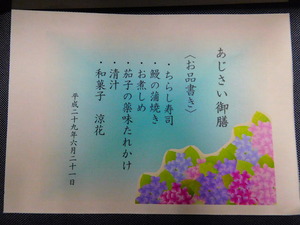 あじさい御膳
〈お品書き〉
・ちらし寿司
・鰻の蒲焼き
・お煮しめ
・茄子の薬味たれかけ
・清汁
・和菓子　涼花
平成二十九年六月二十一日